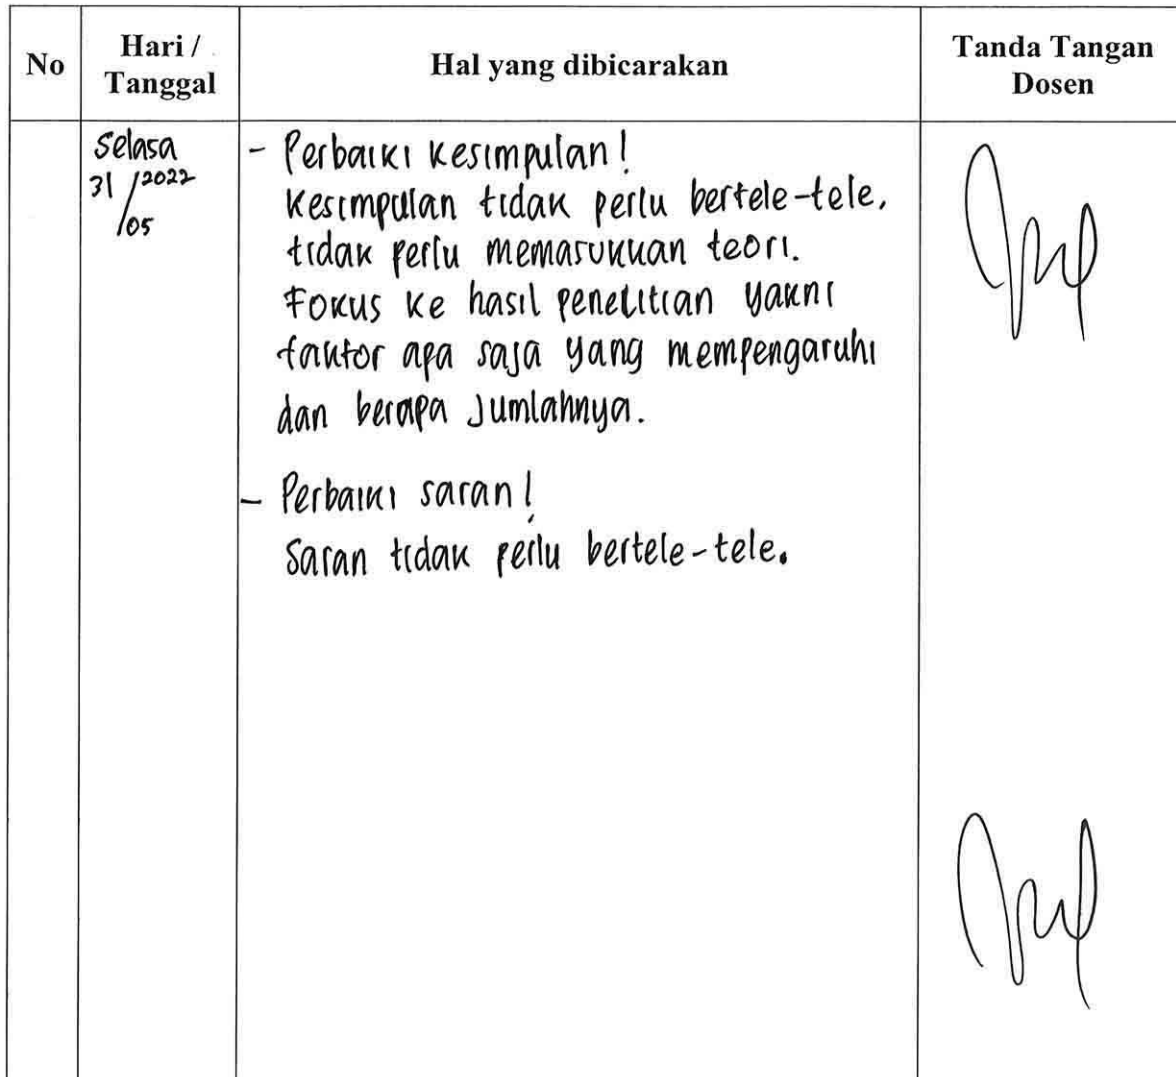 No
Hari /
Tanggal
Hal yang dibicarakan
Tanda Tangan
Dosen
Selasa
31/05/2022
- Perbaiki kesimpulan!
Kesimpulan tidak perlu bertele-tele,
tidak perlu memasukkan teori.
Fokus ke hasil penelitian yakni
faktor apa saja yang mempengaruhi
dan berapa jumlahnya.
- Perbaiki saran!
Saran tidak perlu bertele-tele.